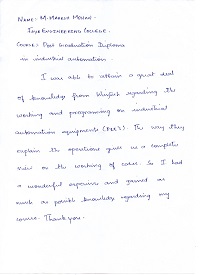 NAME: M. Manoj Mohan
JNN Engineering College.
Course: Post Graduation Diploma
in industrial automation.
I was able to obtain a great deal
of knowledge from regarding the
working and programming on industrial
automation equipments (PLC's). The way they
explain the operations gives us a complete
view on the working of cases. So I had
a wonderful experience and gained as
much as possible knowledge regarding my
course. Thank you.